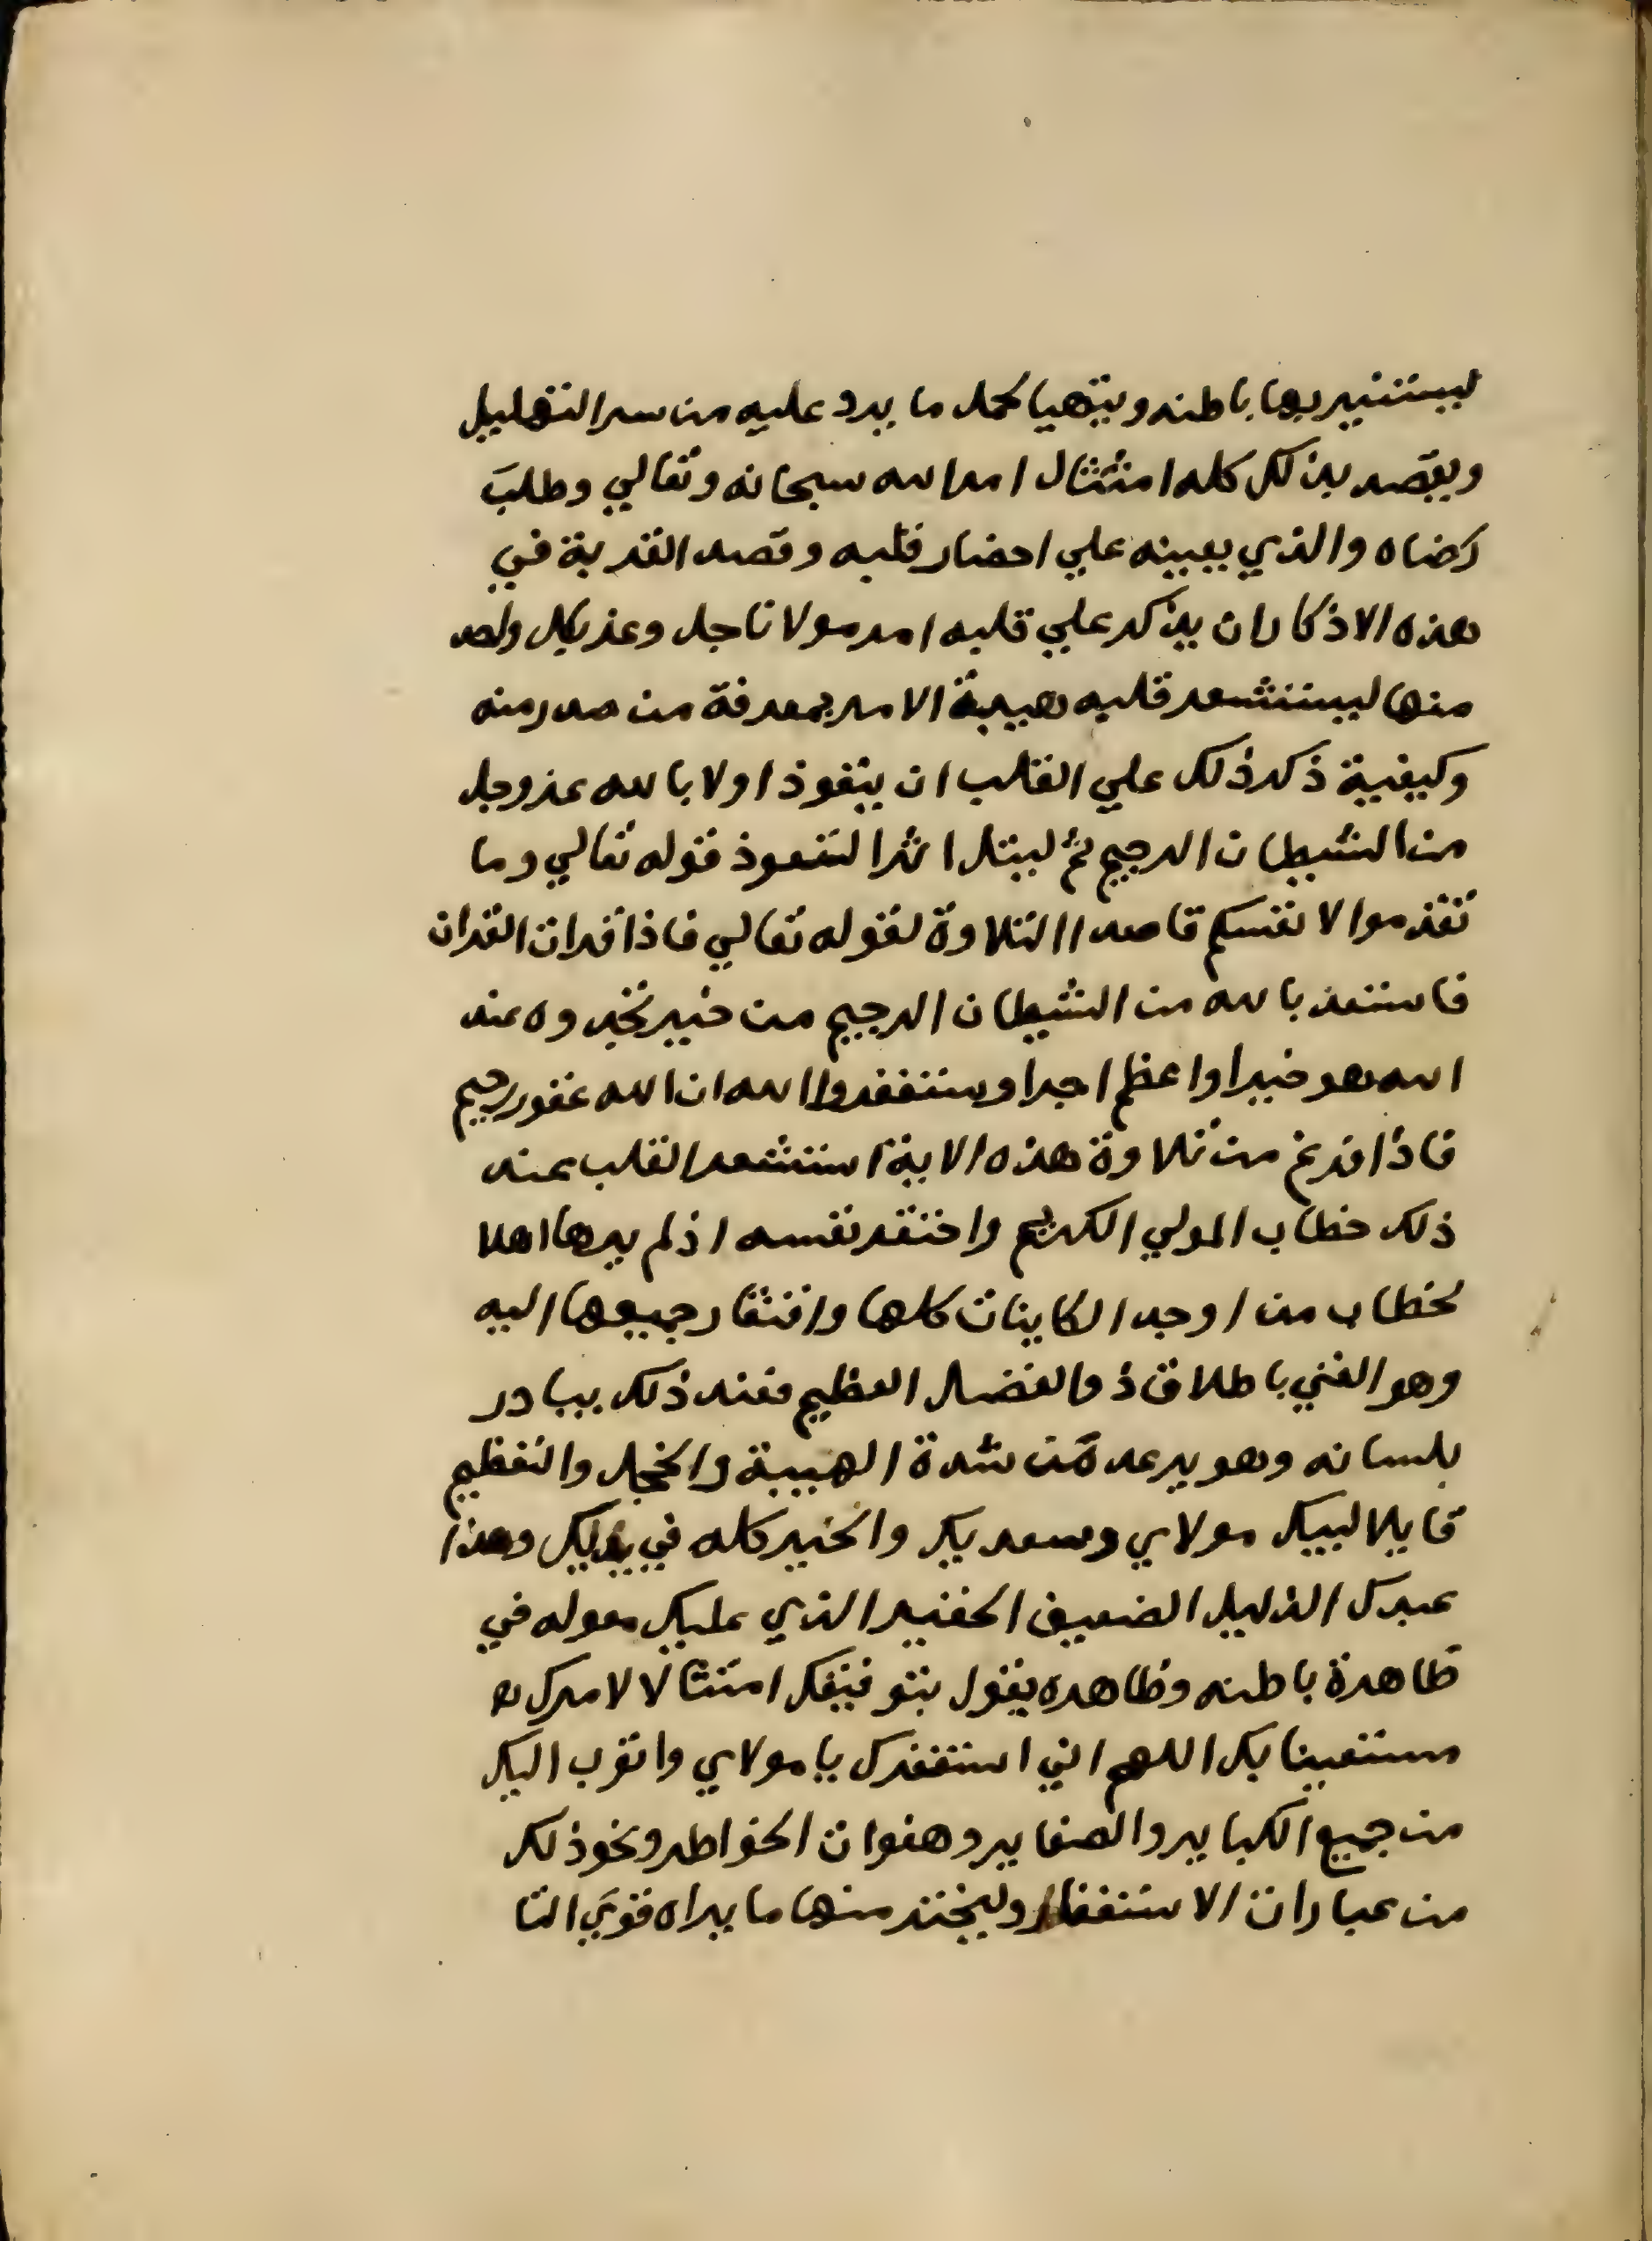 ليستنير بها باطنه ويتهيا لحمل ما يرد عليه من سر التهليل
ويقصد بذلك كله امتثال امر الله سبحانه وتعالي وطلب
رضاه والذي يعينه علي احضار قلبه وقصد القربة في
هذه الاذكار ان يذكر علي قلبه امر مولانا جل وعز بكل واحد
منها ليستشعر قلبه هيبة الامر بمعرفة من صدر منه
وكيفية ذكر ذلك علي القلب ان يتعوذ اولا بالله عز وجل
من الشيطان الرجيم ثم ليتل اثر التعوذ قوله تعالي وما
تقدموا لانفسكم قاصدا التلاوة لقوله تعالي فاذا قرات القران
فاستعذ بالله من الشيطان الرجيم من خير تجدوه عند
الله هو خيرا واعظم اجرا وستغفروا الله ان الله غفور رحيم
فاذا فرغ من تلاوة هذه الاية استشعر القلب عند
ذلك خطاب المولي الكريم واحتقر نفسه اذ لم يرها اهلا
لخطاب من اوجد الكاينات كلها وافتقار جميعها اليه
وهو الغني باطلاق ذو الفضل العظيم فعند ذلك يبادر
بلسانه وهو يرعد من شدة الهيبة والخجل والتعظيم
قايلا لبيك مولاي وسعديك والخير كله في يديك وهذا
عبدك الذليل الضعيف الحقير الذي عليك معوله في
ظاهرة باطنه وظاهره يقول بتوفيقك امتثالا لامرك
مستعينا بك اللهم اني استغفرك يا مولاي واتوب اليك
من جميع الكباير والصغاير وهفوات الخواطر ونحو ذلك
من عبارات الاستغفار وليختر منها ما يراه قوي التا